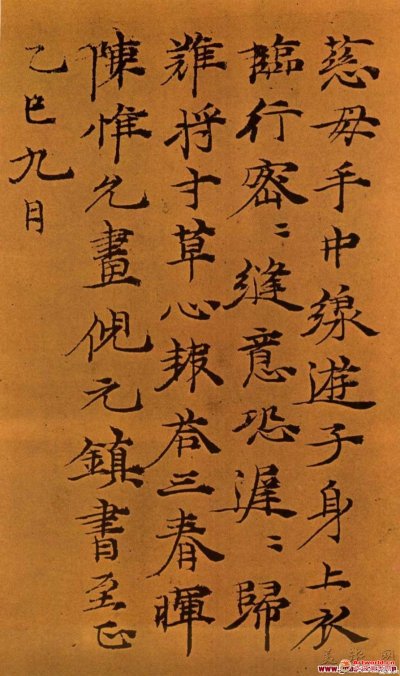 慈母手中線遊子身上衣
臨行密〻縫意恐遲〻歸
難将寸草心報荅三春暉
陳惟允畫倪元鎮書至正
乙巳九月